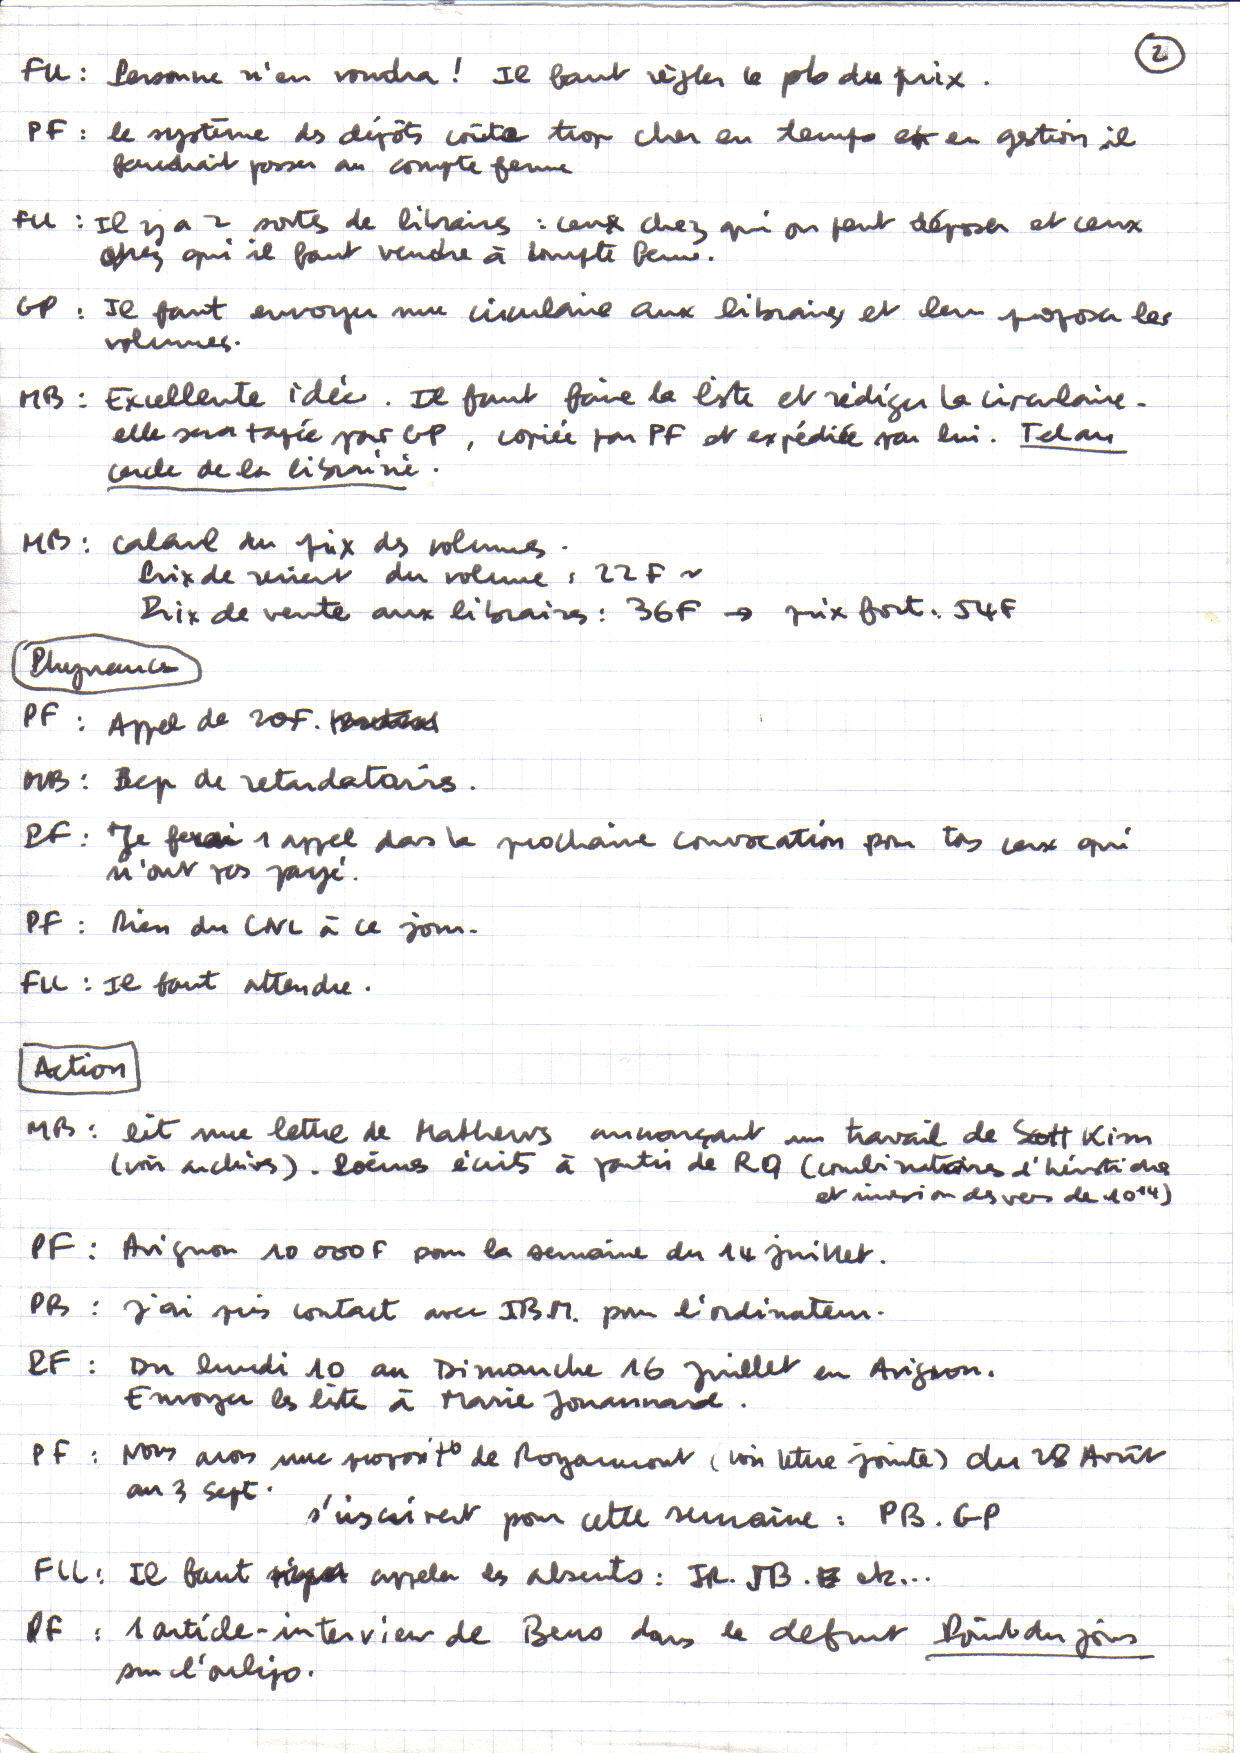 2
FLL : Personne n'en voudra ! Il faut règler le pb du prix.
PF : le système des dépôts coûte trop cher en temps et en gestion il
faudrait passer au compte ferme
FLL : Il y a 2 sortes de libraires : ceux chez qui on peut déposer et ceux
chez qui il faut vendre à compte ferme.
GP : Il faut envoyer une circulaire aux libraires et leur proposer les
volumes.
MB : Excellente idée. Il faut faire la liste et rédiger la circulaire.
elle sera tapée par GP, copiée par PF et expédiée par lui. Tel au
cercle de la librairie.
MB : calcul du prix des volumes.
Prix de revient du volume : 22F ~
Prix de vente aux libraires : 36F → prix fort. 54F
Phynance
PF : Appel de 20F.
MB : Bcp de retardataires.
PF : Je ferai 1 appel dans la prochaine convocation pour ts ceux qui
n'ont pas payé.
PF : Rien du CNL à ce jour.
FLL : Il faut attendre.
Action
MB : lit une lettre de Mathews annonçant un travail de Scott Kim
(voir archives). Poèmes écrits à partir de RQ (combinatoires d'hémistiches
et inversion des vers de 10¹⁴)
PF : Avignon 10 000F pour la semaine du 14 juillet.
PB : j'ai pris contact avec I.B.M. pour l'ordinateur.
PF : Du lundi 10 au Dimanche 16 juillet en Avignon.
Envoyer les liste à Marie
PF : Nous avons une proposit° de Royaumont (voir lettre jointe) du 28 Août
au 3 Sept.
s'inscrivent pour cette semaine : PB. GP
FLL : Il faut appeler les absents : JR. JB. etc...
PF : 1 article-interview de Bens dans le defunt Point du jour
sur l'oulipo.